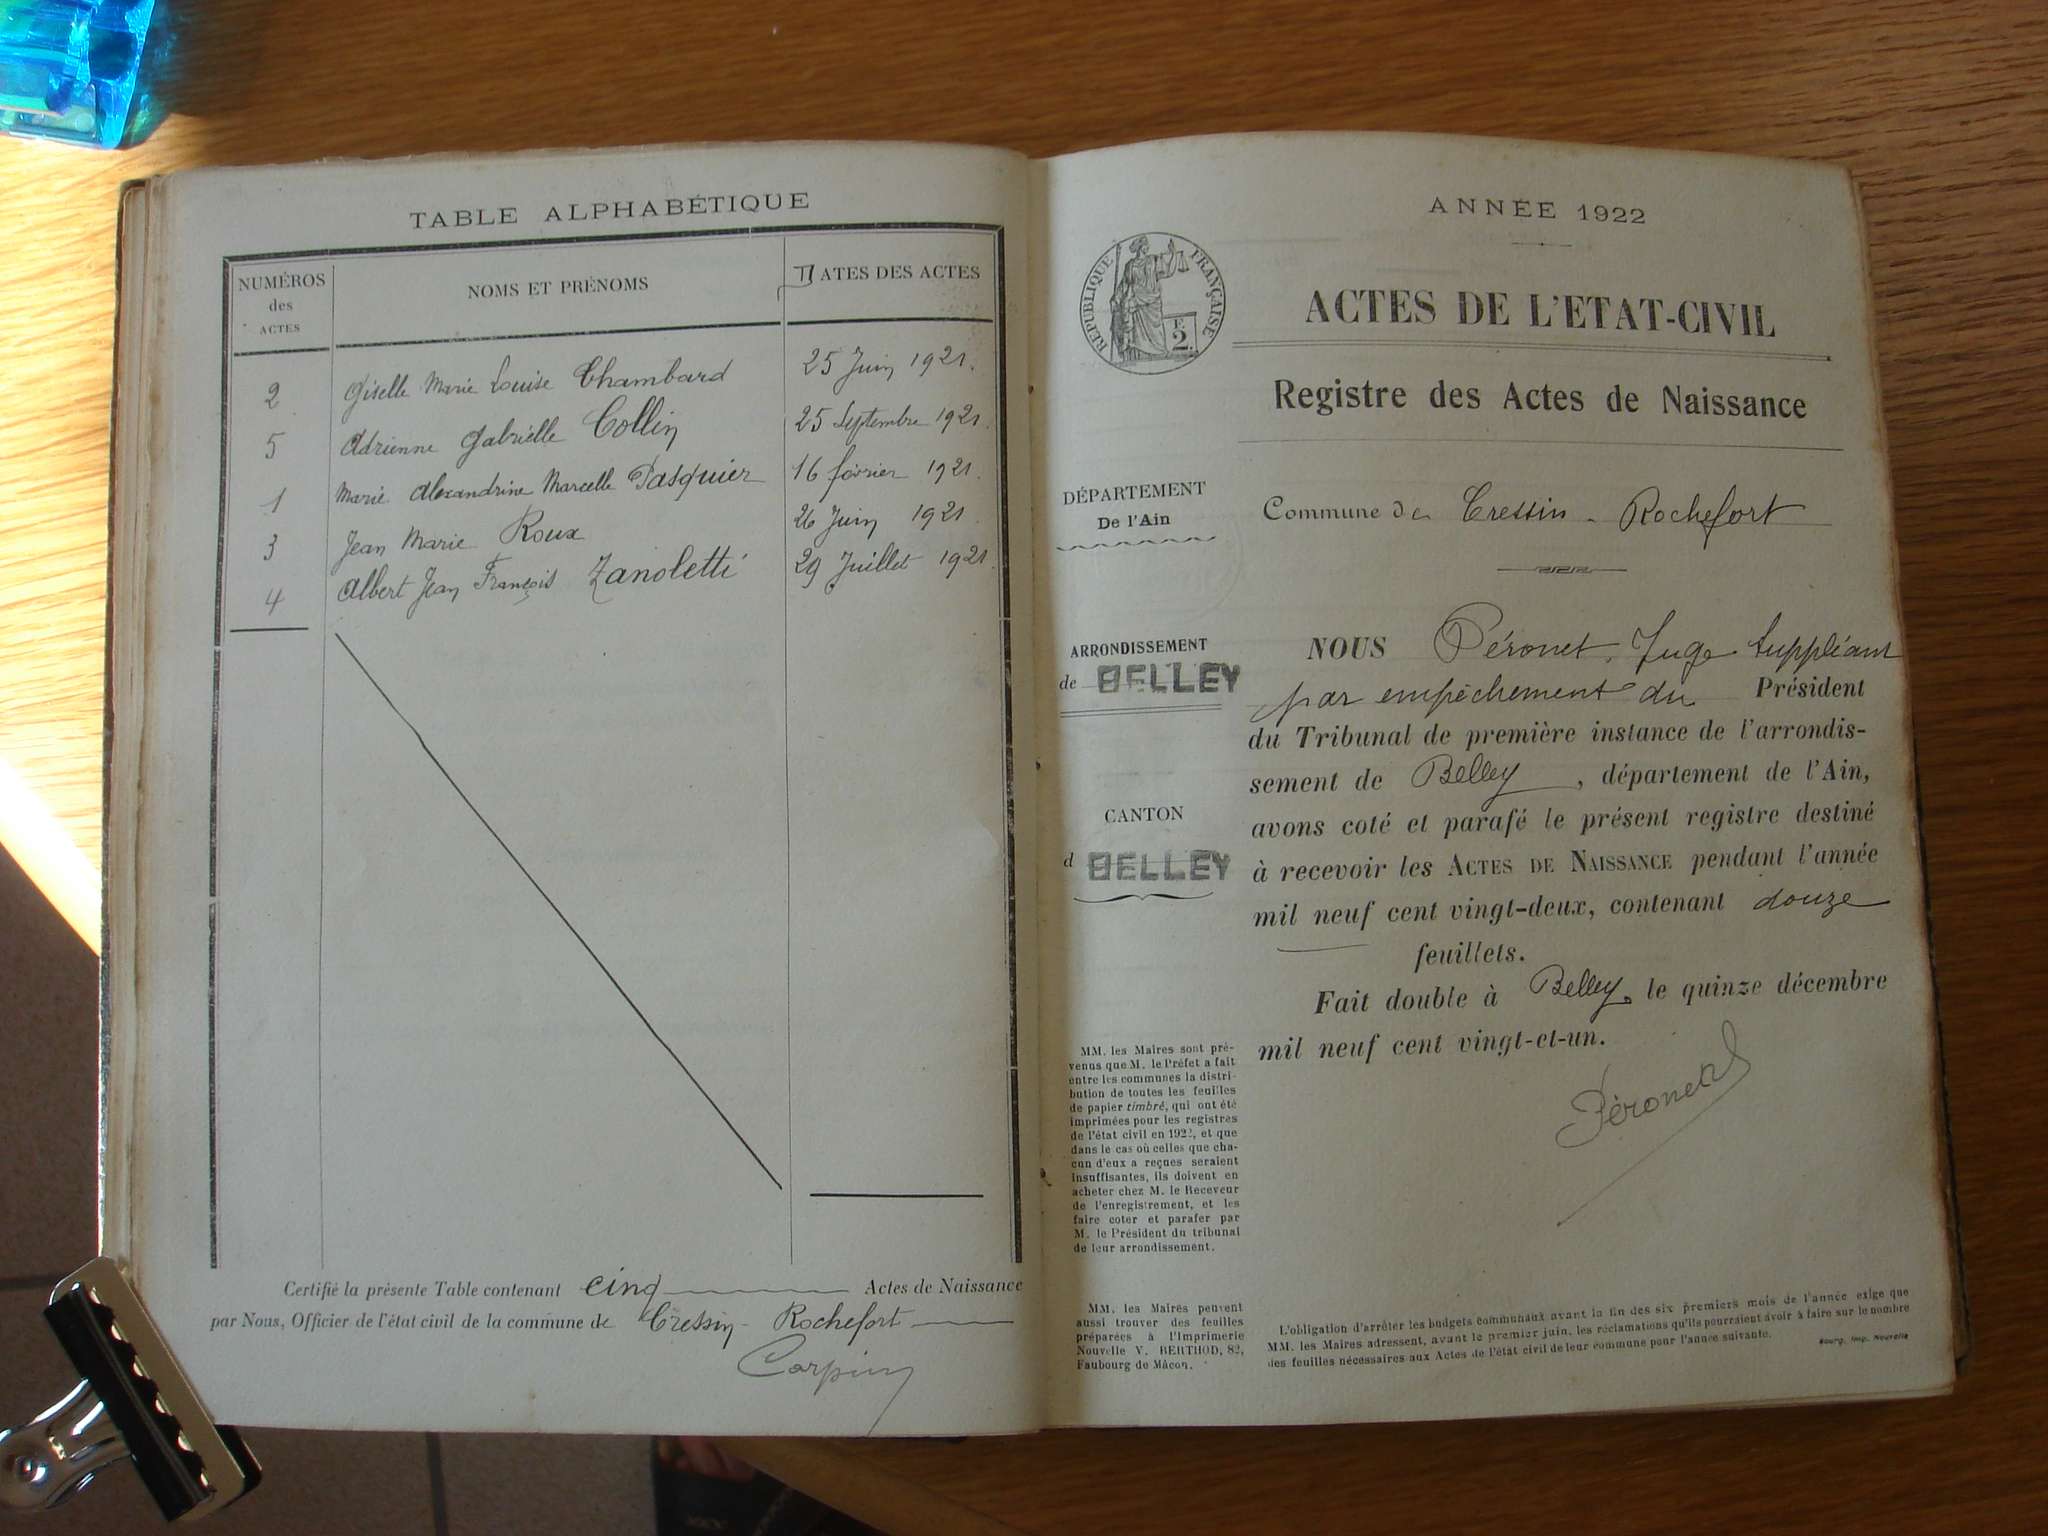 TABLE ALPHABÉTIQUE
NUMÉROS des ACTES
NOMS ET PRÉNOMS
DATES DES ACTES
2 Giselle Marie Louise Chambard 25 Juin 1921.
5 Adrienne Gabrielle Collin 25 Septembre 1921.
1 Marie Alexandrine Marcelle Pasquier 16 février 1921.
3 Jean Marie Roux 26 Juin 1921
4 Albert Jean François Zanoletti 29 Juillet 1921.
Certifié la présente Table contenant cinq Actes de Naissance
par Nous, Officier de l'état civil de la commune de Cressin-Rochefort
Carpin
ANNÉE 1922
RÉPUBLIQUE FRANÇAISE
F.
2.
ACTES DE L'ETAT-CIVIL
Registre des Actes de Naissance
DÉPARTEMENT
De l'Ain
Commune de Cressin-Rochefort
ARRONDISSEMENT
de BELLEY
CANTON
d BELLEY
NOUS Péronet, Juge Suppléant
par empêchement du Président
du Tribunal de première instance de l'arrondis-
sement de Belley, département de l'Ain,
avons coté et parafé le présent registre destiné
à recevoir les ACTES DE NAISSANCE pendant l'année
mil neuf cent vingt-deux, contenant douze
feuillets.
Fait double à Belley, le quinze décembre
mil neuf cent vingt-et-un.
Péronet
MM. les Maires sont pré-
venus que M. le Préfet a fait
entre les communes la distri-
bution de toutes les feuilles
de papier timbré, qui ont été
imprimées pour les registres
de l'état civil en 1922, et que
dans le cas où celles que cha-
cun d'eux a reçues seraient
insuffisantes, ils doivent en
acheter chez M. le Receveur
de l'enregistrement, et les
faire coter et parafer par
M. le Président du tribunal
de leur arrondissement.
MM. les Maires peuvent
aussi trouver des feuilles
préparées à l'Imprimerie
Nouvelle V. BERTHOD, 82,
Faubourg de Mâcon.
L'obligation d'arrêter les budgets communaux avant la fin des six premiers mois de l'année exige que
MM. les Maires adressent, avant le premier juin, les réclamations qu'ils pourraient avoir à faire sur le nombre
des feuilles nécessaires aux Actes de l'état civil de leur commune pour l'année suivante.
Bourg. Imp. Nouvelle